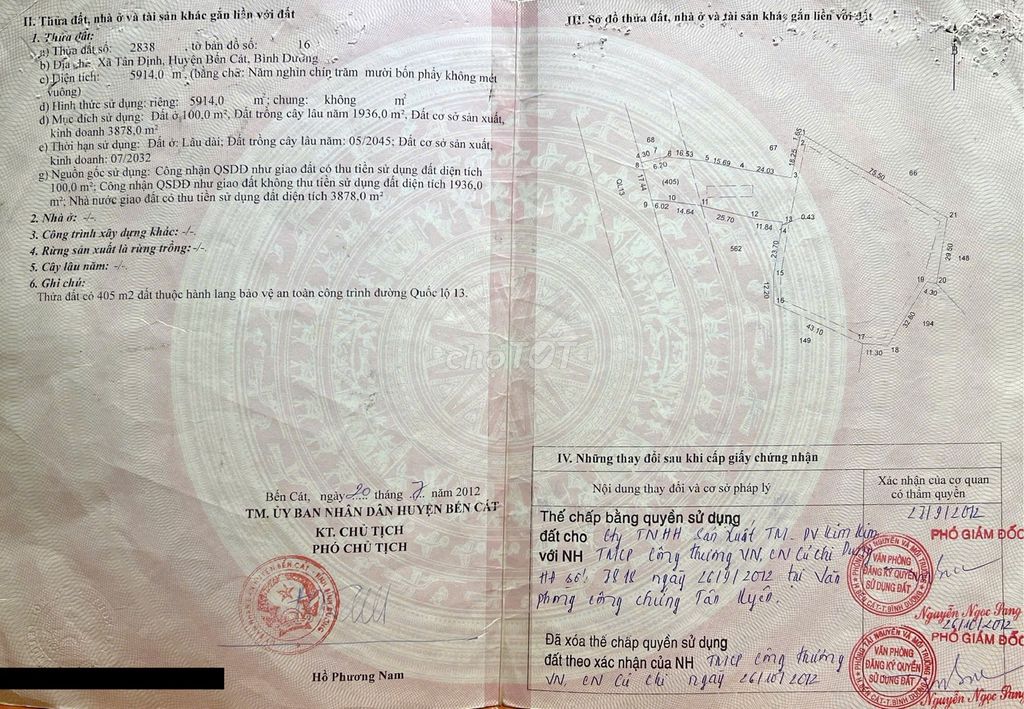 II. Thửa đất, nhà ở và tài sản khác gắn liền với đất
1. Thửa đất:
a) Thửa đất số: 2838 , tờ bản đồ số: 16
b) Địa chỉ: Xã Tân Định, Huyện Bến Cát, Bình Dương
c) Diện tích: 5914,0 m², (bằng chữ: Năm nghìn chín trăm mười bốn phẩy không mét
vuông)
d) Hình thức sử dụng: riêng: 5914,0 m²; chung: không m²
đ) Mục đích sử dụng: Đất ở 100,0 m², Đất trồng cây lâu năm 1936,0 m², Đất cơ sở sản xuất,
kinh doanh 3878,0 m²
e) Thời hạn sử dụng: Đất ở: Lâu dài; Đất trồng cây lâu năm: 05/2045; Đất cơ sở sản xuất,
kinh doanh: 07/2032
g) Nguồn gốc sử dụng: Công nhận QSDĐ như giao đất có thu tiền sử dụng đất diện tích
100,0 m²; Công nhận QSDĐ như giao đất không thu tiền sử dụng đất diện tích 1936,0
m²; Nhà nước giao đất có thu tiền sử dụng đất diện tích 3878,0 m²
2. Nhà ở: -/-
3. Công trình xây dựng khác: -/-.
4. Rừng sản xuất là rừng trồng: -/-.
5. Cây lâu năm: -/-.
6. Ghi chú:
Thửa đất có 405 m2 đất thuộc hành lang bảo vệ an toàn công trình đường Quốc lộ 13.
Bến Cát, ngày 20 tháng 7 năm 2012
TM. ỦY BAN NHÂN DÂN HUYỆN BẾN CÁT
KT. CHỦ TỊCH
PHÓ CHỦ TỊCH
Hồ Phương Nam
III. Sơ đồ thửa đất, nhà ở và tài sản khác gắn liền với đất
1 1.85
2
68 67 18.25 66
4.30 7 8 16.53 5 15.69 4 24.03 3 75.50
8 6.20
QL13 17.44 (405)
9 6.02 10 14.64 11 25.70 12 11.84 13 0.43
14 21
562 23.70 29.50 148
15 19 20
12.20 16 4.30
43.10 32.80 194
149 17 11.30 18
chợTỐT
IV. Những thay đổi sau khi cấp giấy chứng nhận
Nội dung thay đổi và cơ sở pháp lý
Xác nhận của cơ quan
có thẩm quyền
Thế chấp bằng quyền sử dụng
đất cho Cty TNHH Sản Xuất TM - DV Kim Kim
với NH TMCP Công thương VN, CN Củ Chi
HĐ số: 7818 ngày 26/9/2012 tại Văn
phòng công chứng Tân Uyên.
27/9/2012
PHÓ GIÁM ĐỐC
VĂN PHÒNG
ĐĂNG KÝ QUYỀN
SỬ DỤNG ĐẤT
Nguyễn Ngọc Sang
Đã xóa thế chấp quyền sử dụng
đất theo xác nhận của NH TMCP Công thương
VN, CN Củ Chi ngày 26/10/2012
26/10/2012
PHÓ GIÁM ĐỐC
VĂN PHÒNG
ĐĂNG KÝ QUYỀN
SỬ DỤNG ĐẤT
Nguyễn Ngọc Sang